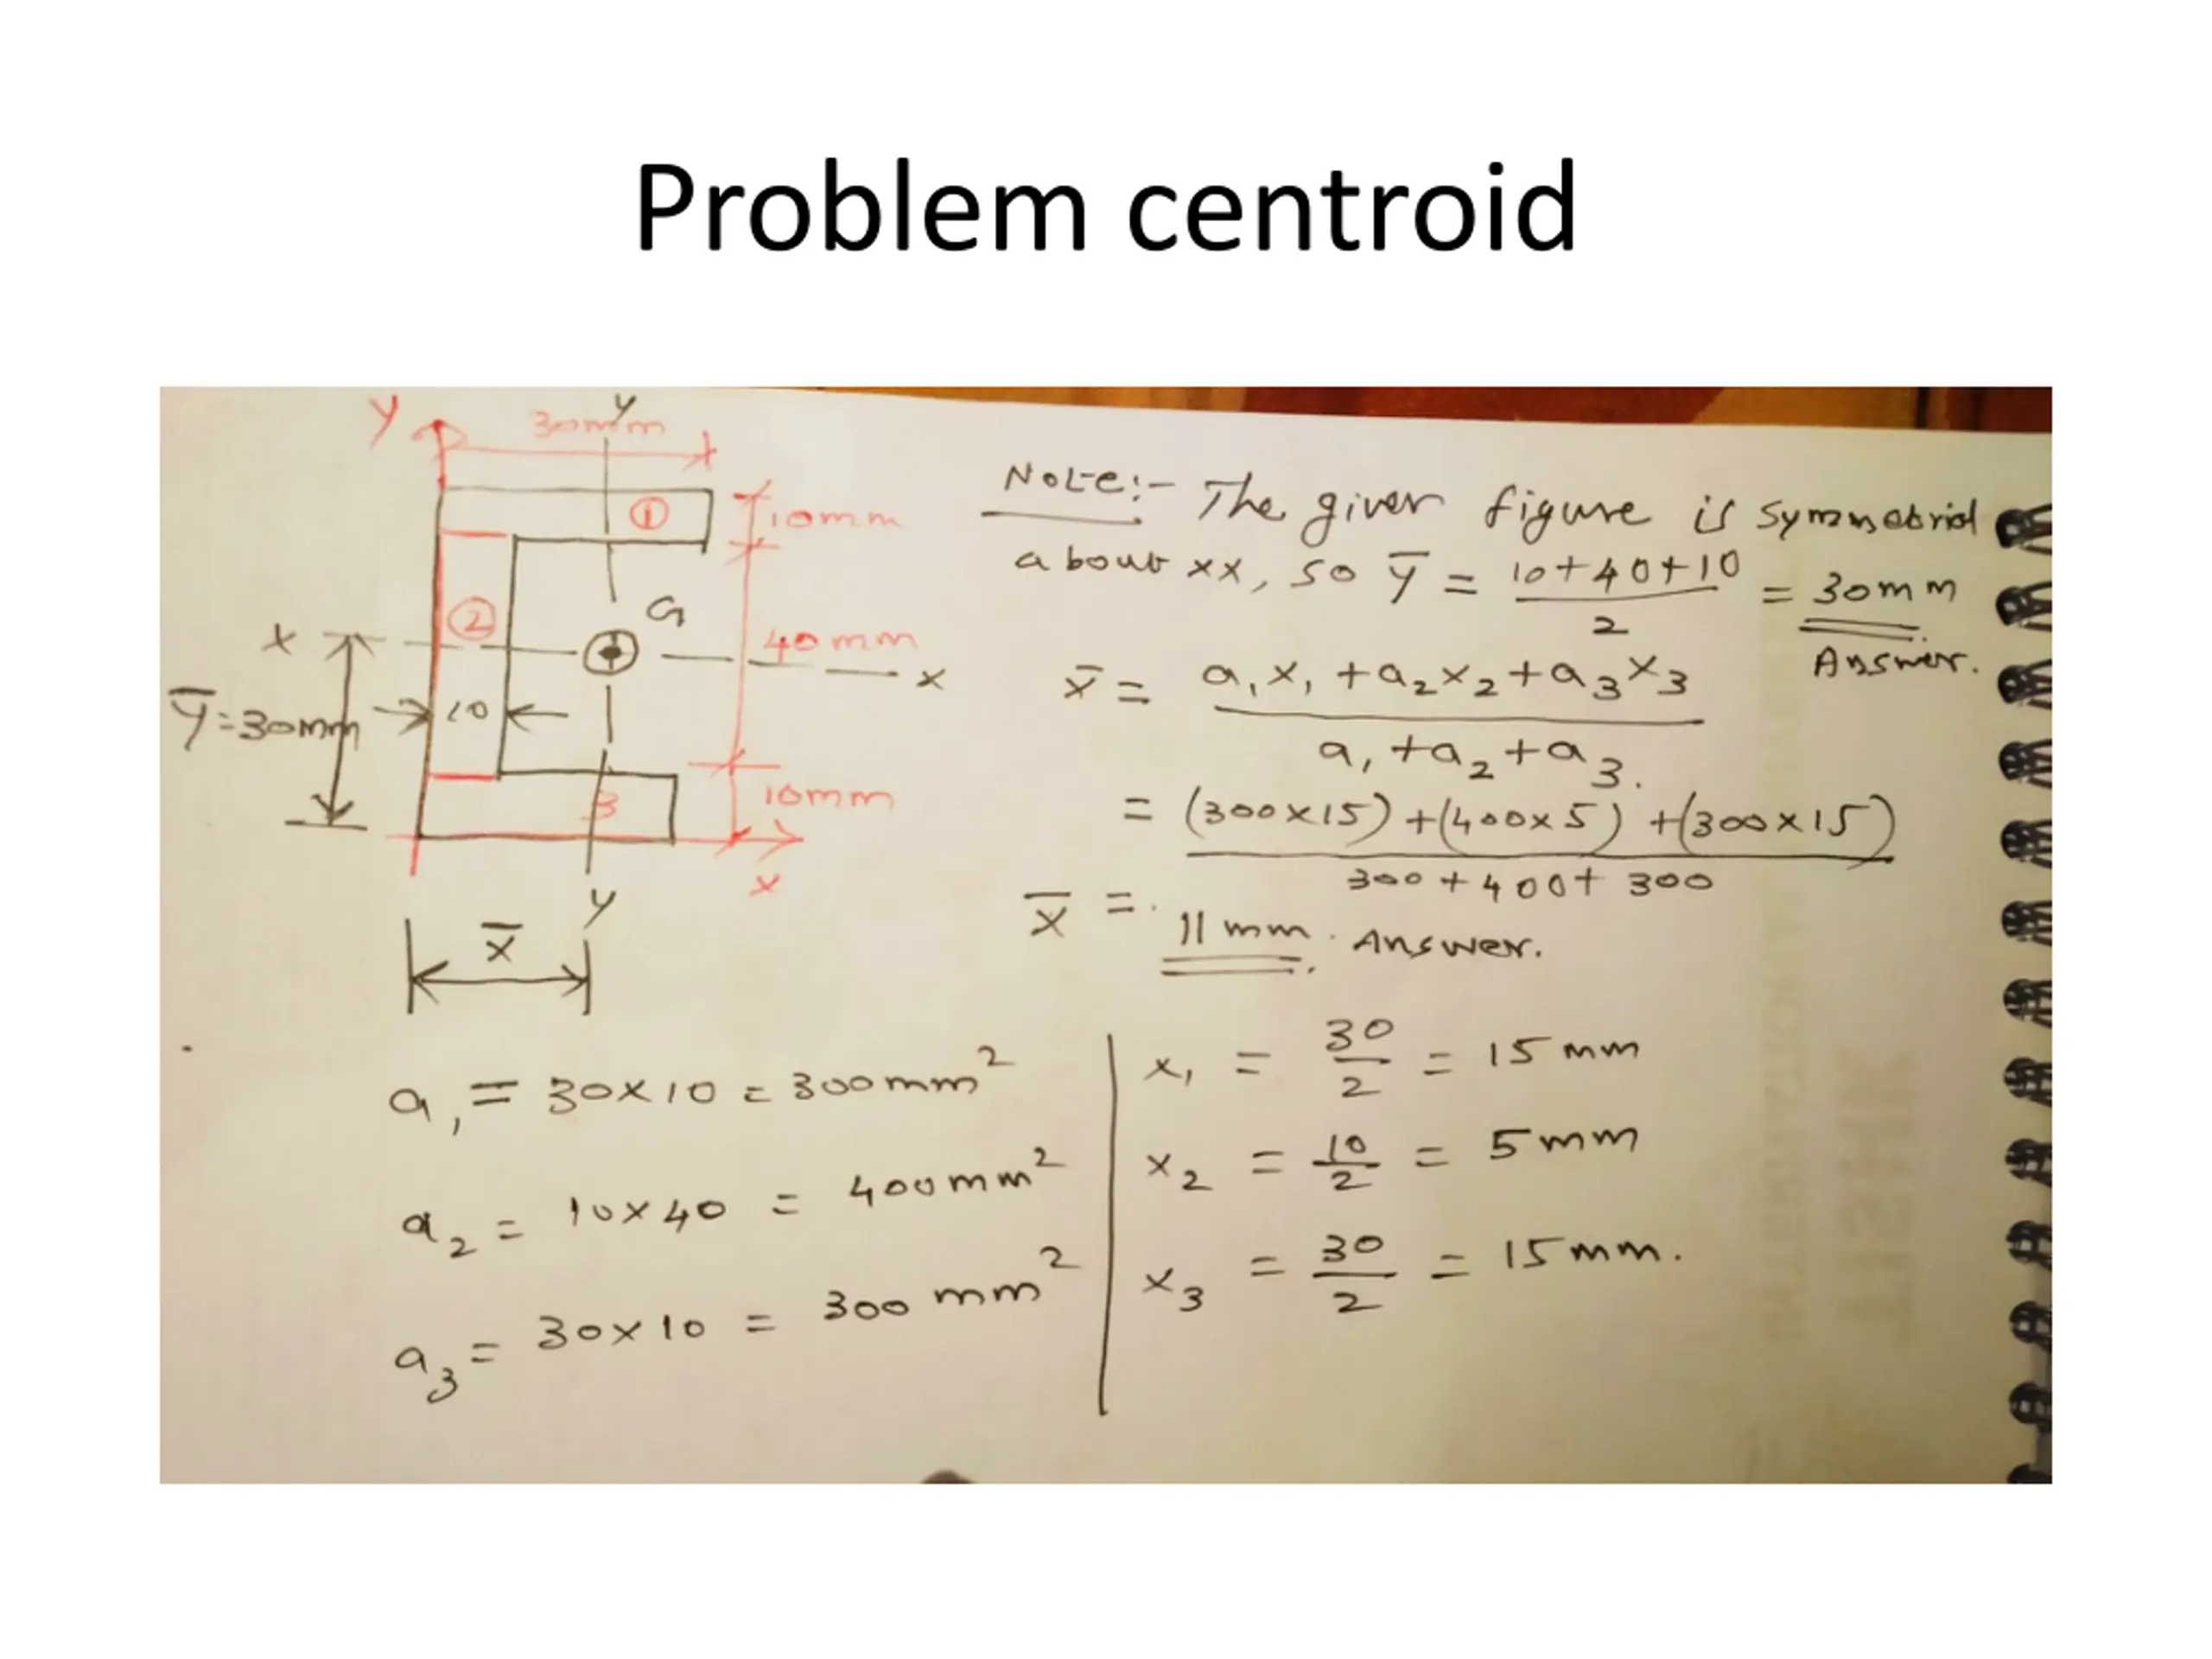 Problem centroid
Y
y
30mm
①
10mm
②
G
x
40mm
x
Y̅=30mm
10
3
10mm
x
y
x̅
Note:- The given figure is symmetrical
about xx, so Y̅ = (10+40+10)/2 = 30mm
Answer.
x̅ = (a₁x₁ + a₂x₂ + a₃x₃)/(a₁ + a₂ + a₃.)
= ((300×15) + (400×5) + (300×15))/(300 + 400 + 300)
x̅ = 11 mm. Answer.
a₁ = 30×10 = 300mm²
a₂ = 10×40 = 400mm²
a₃ = 30×10 = 300 mm²
x₁ = 30/2 = 15 mm
x₂ = 10/2 = 5 mm
x₃ = 30/2 = 15 mm.